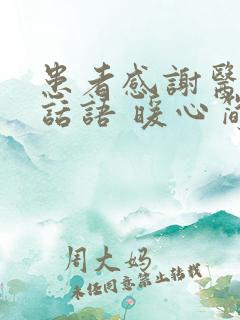 患者感謝醫
話語 暖心 簡
周大妈
未经同意禁止转载